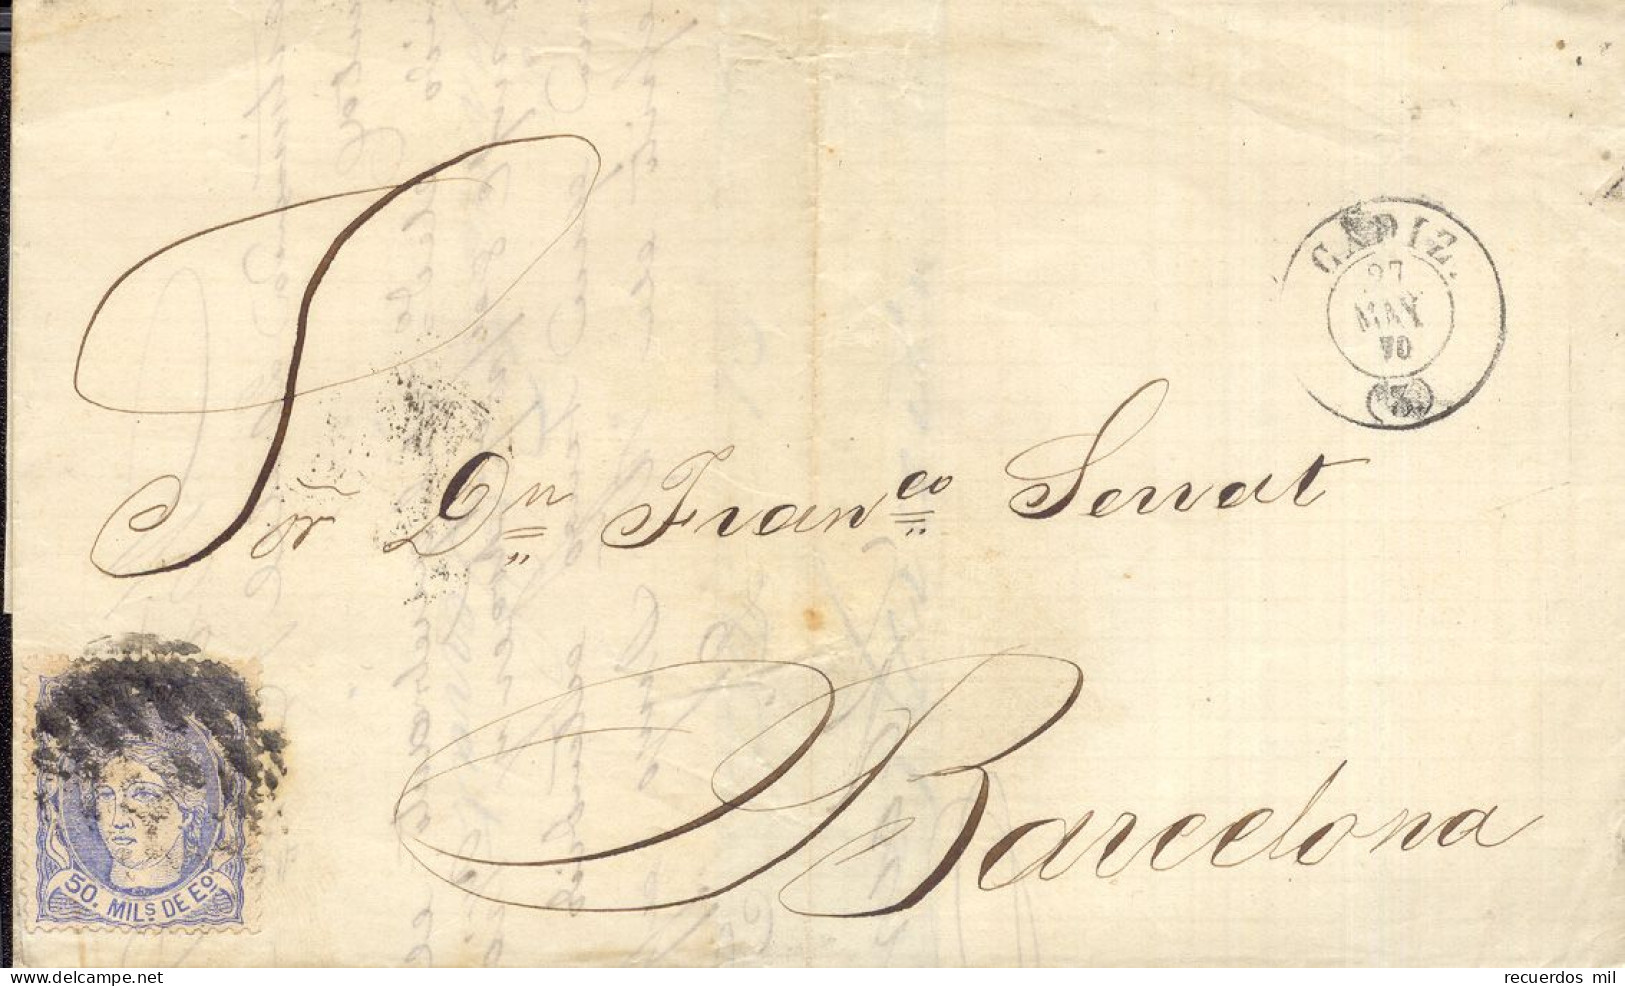 CADIZ.
27
MAY
70
(3.)
Sor Dn Franco Serrat
Barcelona
50. MILS DE EO
delcampe.net
recuerdos mil